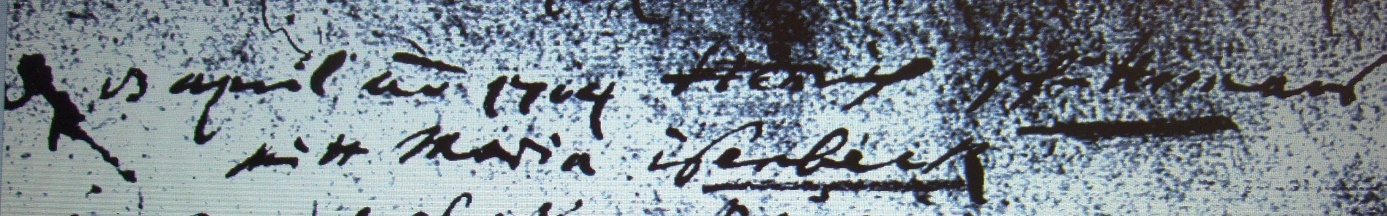 13 april an 1704 Henrich
mitt Maria isenbeck